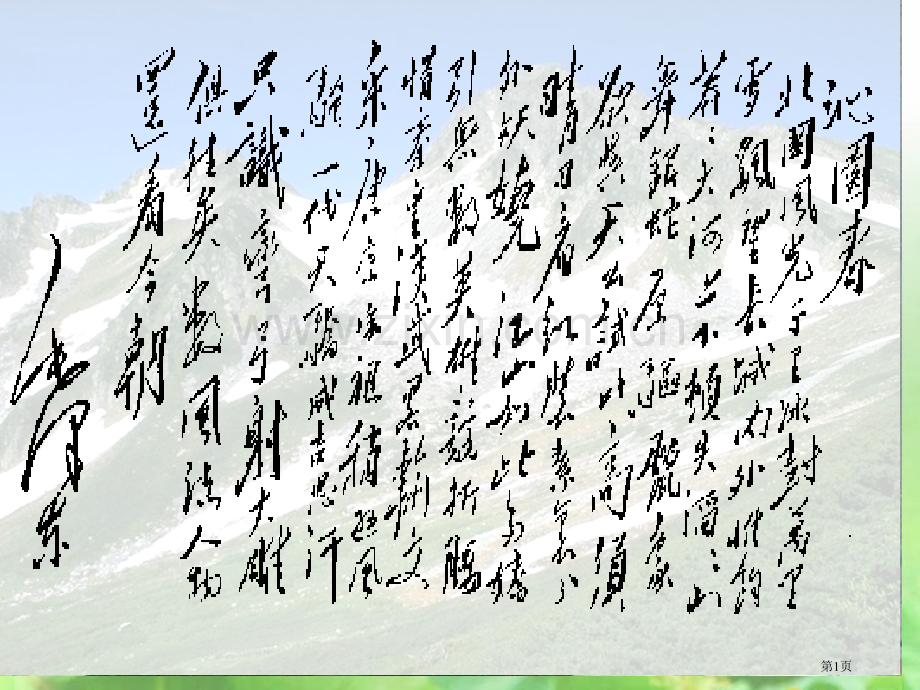 沁園春
北國風光千里冰封萬里
雪飄望長城内外惟餘
莽〻大河上下頓失滔〻山
舞銀蛇原驅臘象
欲與天公試比高須
晴日看紅裝素裹分
外妖嬈江山如此多嬌
引無數英雄競折腰
惜秦皇漢武略輸文
采唐宗宋祖稍遜風
騷一代天驕成吉思汗
只識彎弓射大雕
俱往矣數風流人物
還看今朝
毛澤東
www.zixin.com.cn
第1页